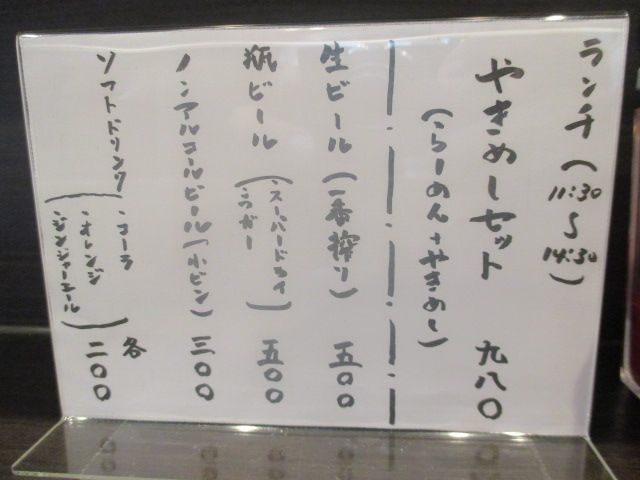 ランチ(11:30〜14:30)
やきめしセット 九八〇
(らーめん+やきめし)
生ビール(一番搾り) 五〇〇
瓶ビール(・スーパードライ 五〇〇
ノンアルコールビール(小ビン) 三〇〇
ソフトドリンク(・コーラ
・オレンジ
・ジンジャーエール) 各二〇〇